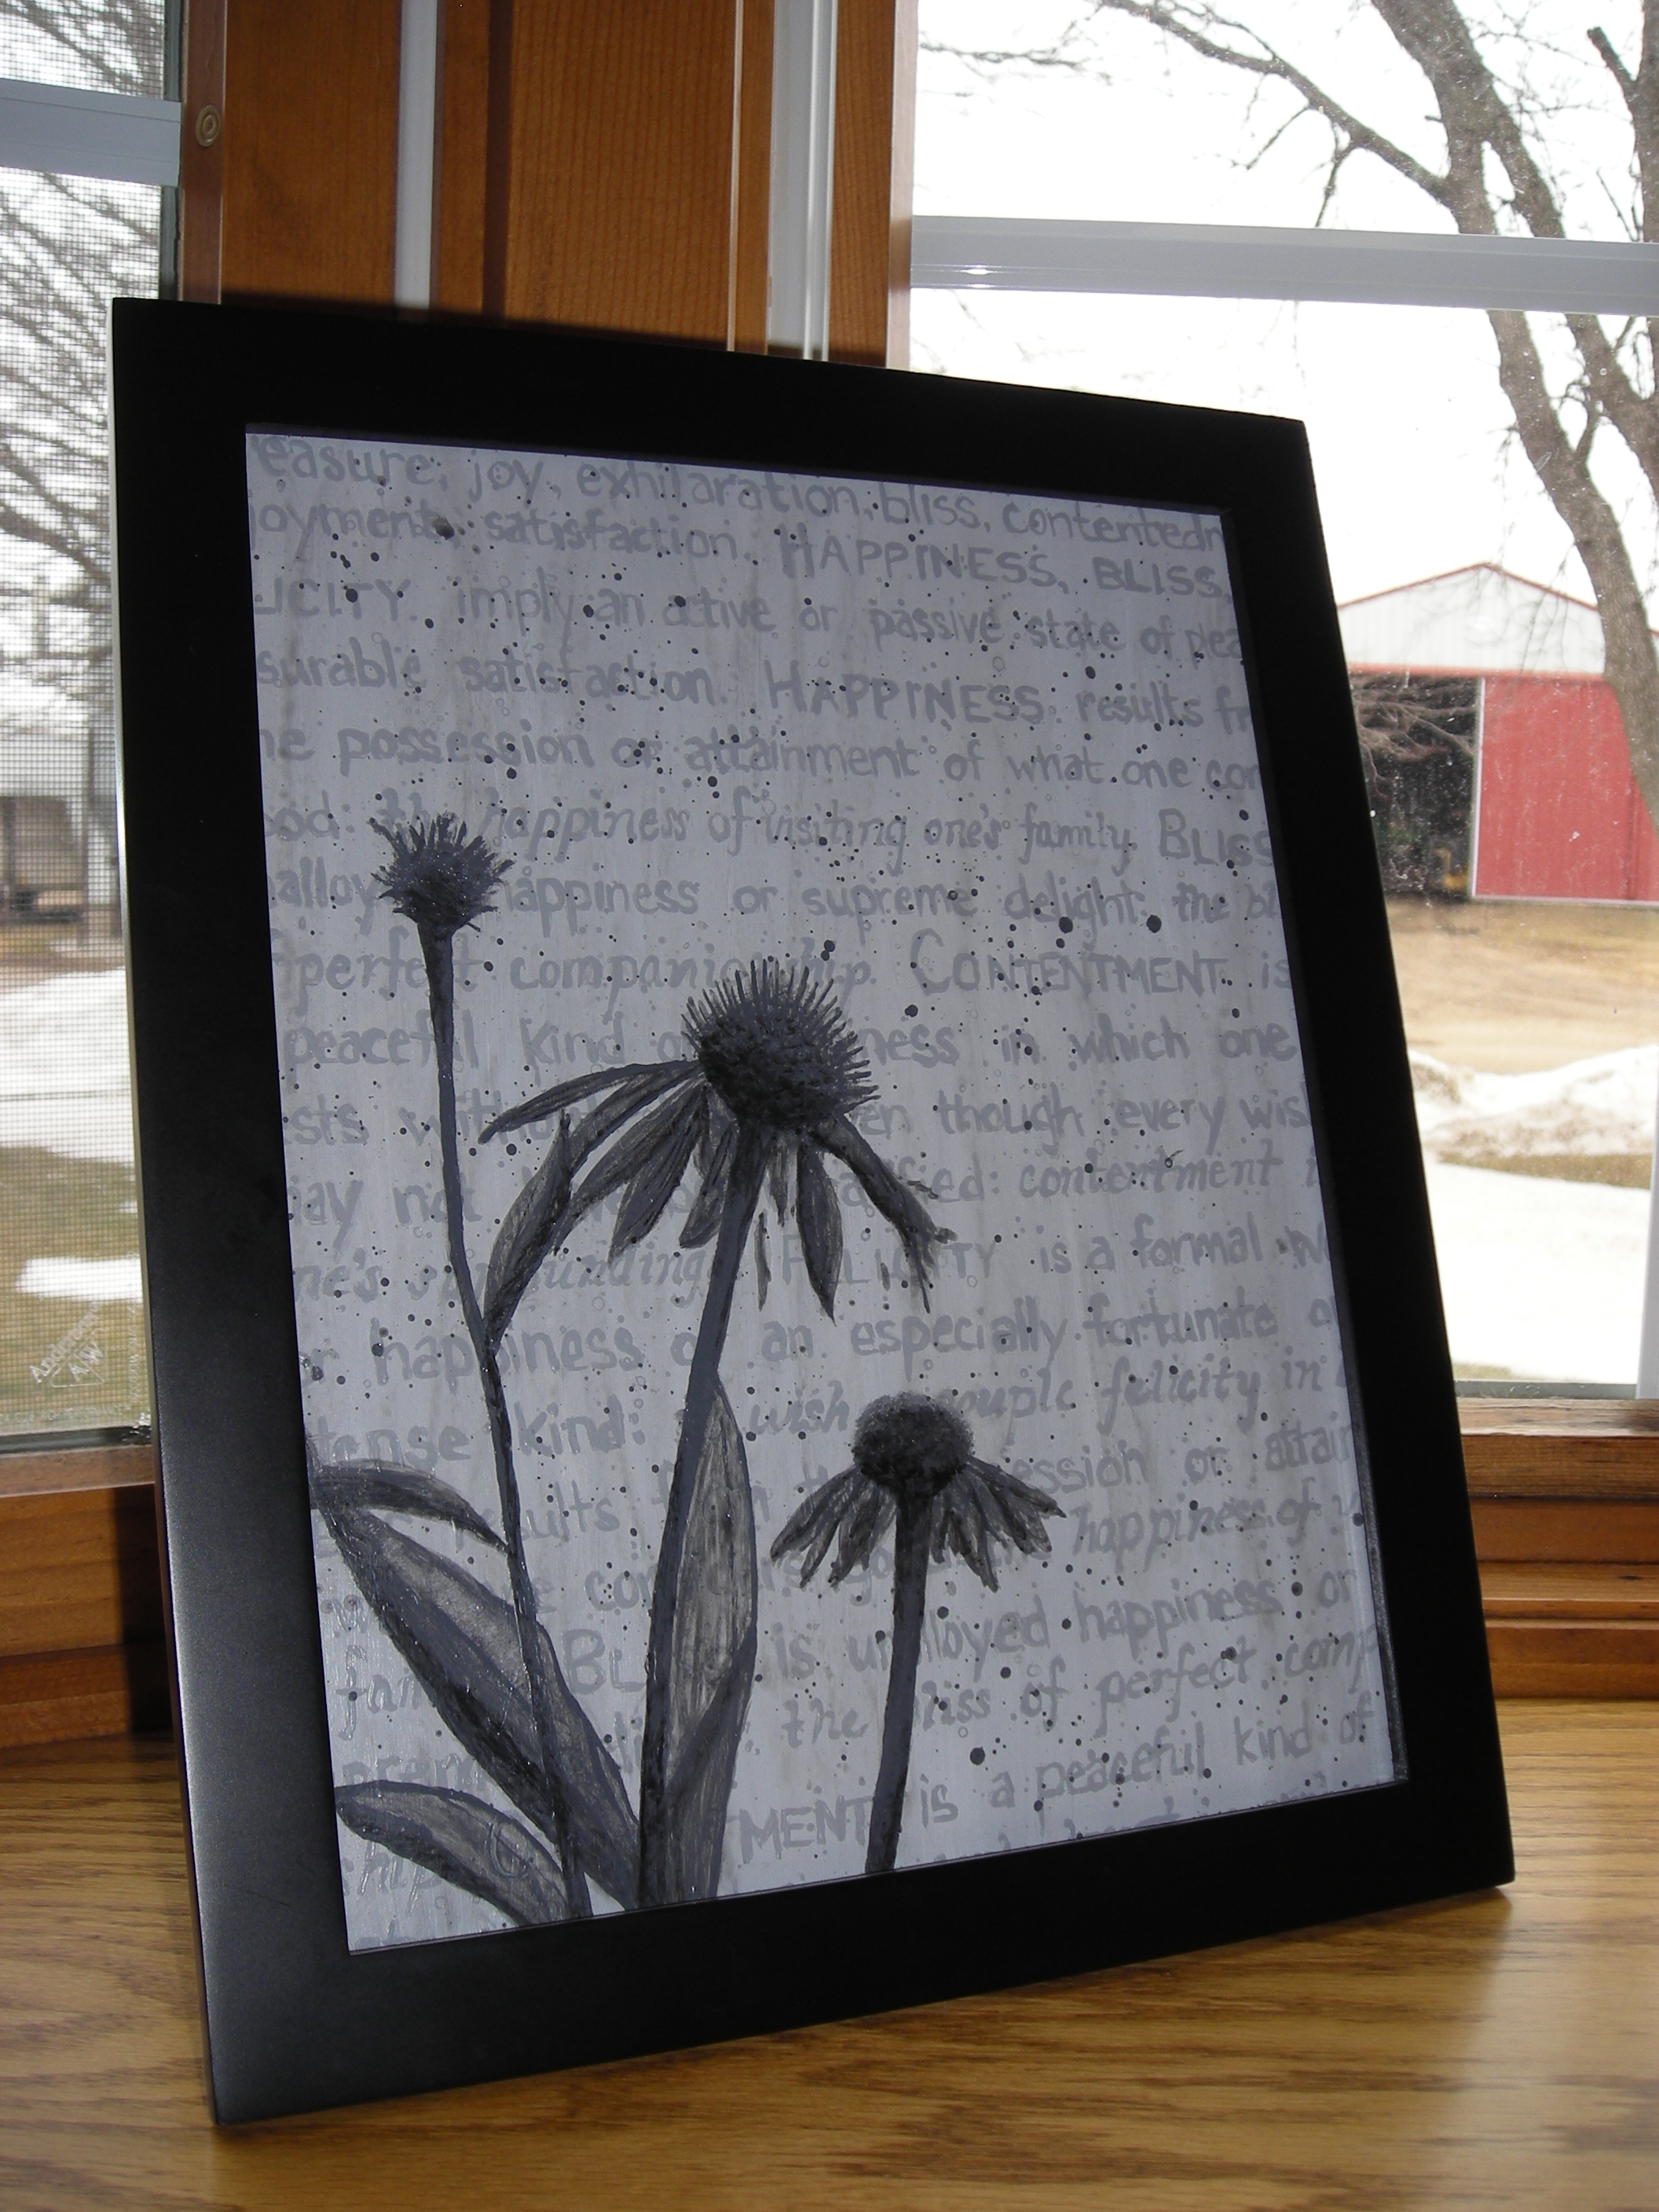 easure, joy, exhilaration, bliss, contentedn
joyment, satisfaction. HAPPINESS, BLISS,
LICITY imply an active or passive state of plea
surable satisfaction. HAPPINESS results fr
he possession or attainment of what one con
ood: the happiness of visiting one's family. BLISS
alloy happiness or supreme delight: the bl
f perfect companionship. CONTENTMENT is
peaceful kind of ness in which one
sts witho en though every wis
may not fied: contentment i
ne's surroundings. FELICITY is a formal w
r happiness of an especially fortunate o
tense kind: wish couple felicity in
sults ession or attain
e con the happiness of v
fam BL is unalloyed happiness or
the bliss of perfect comp
TMENT is a peaceful kind of
ship
Andersen
AW